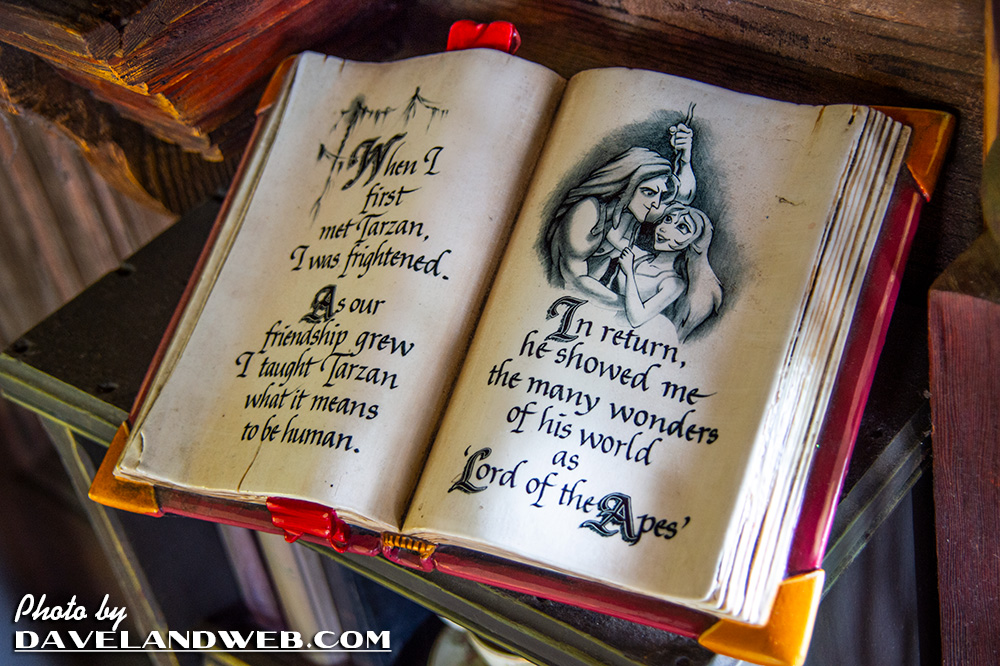 When I
first
met Tarzan,
I was frightened.
As our
friendship grew
I taught Tarzan
what it means
to be human.
In return,
he showed me
the many wonders
of his world
as
'Lord of the Apes'
Photo by
DAVELANDWEB.COM